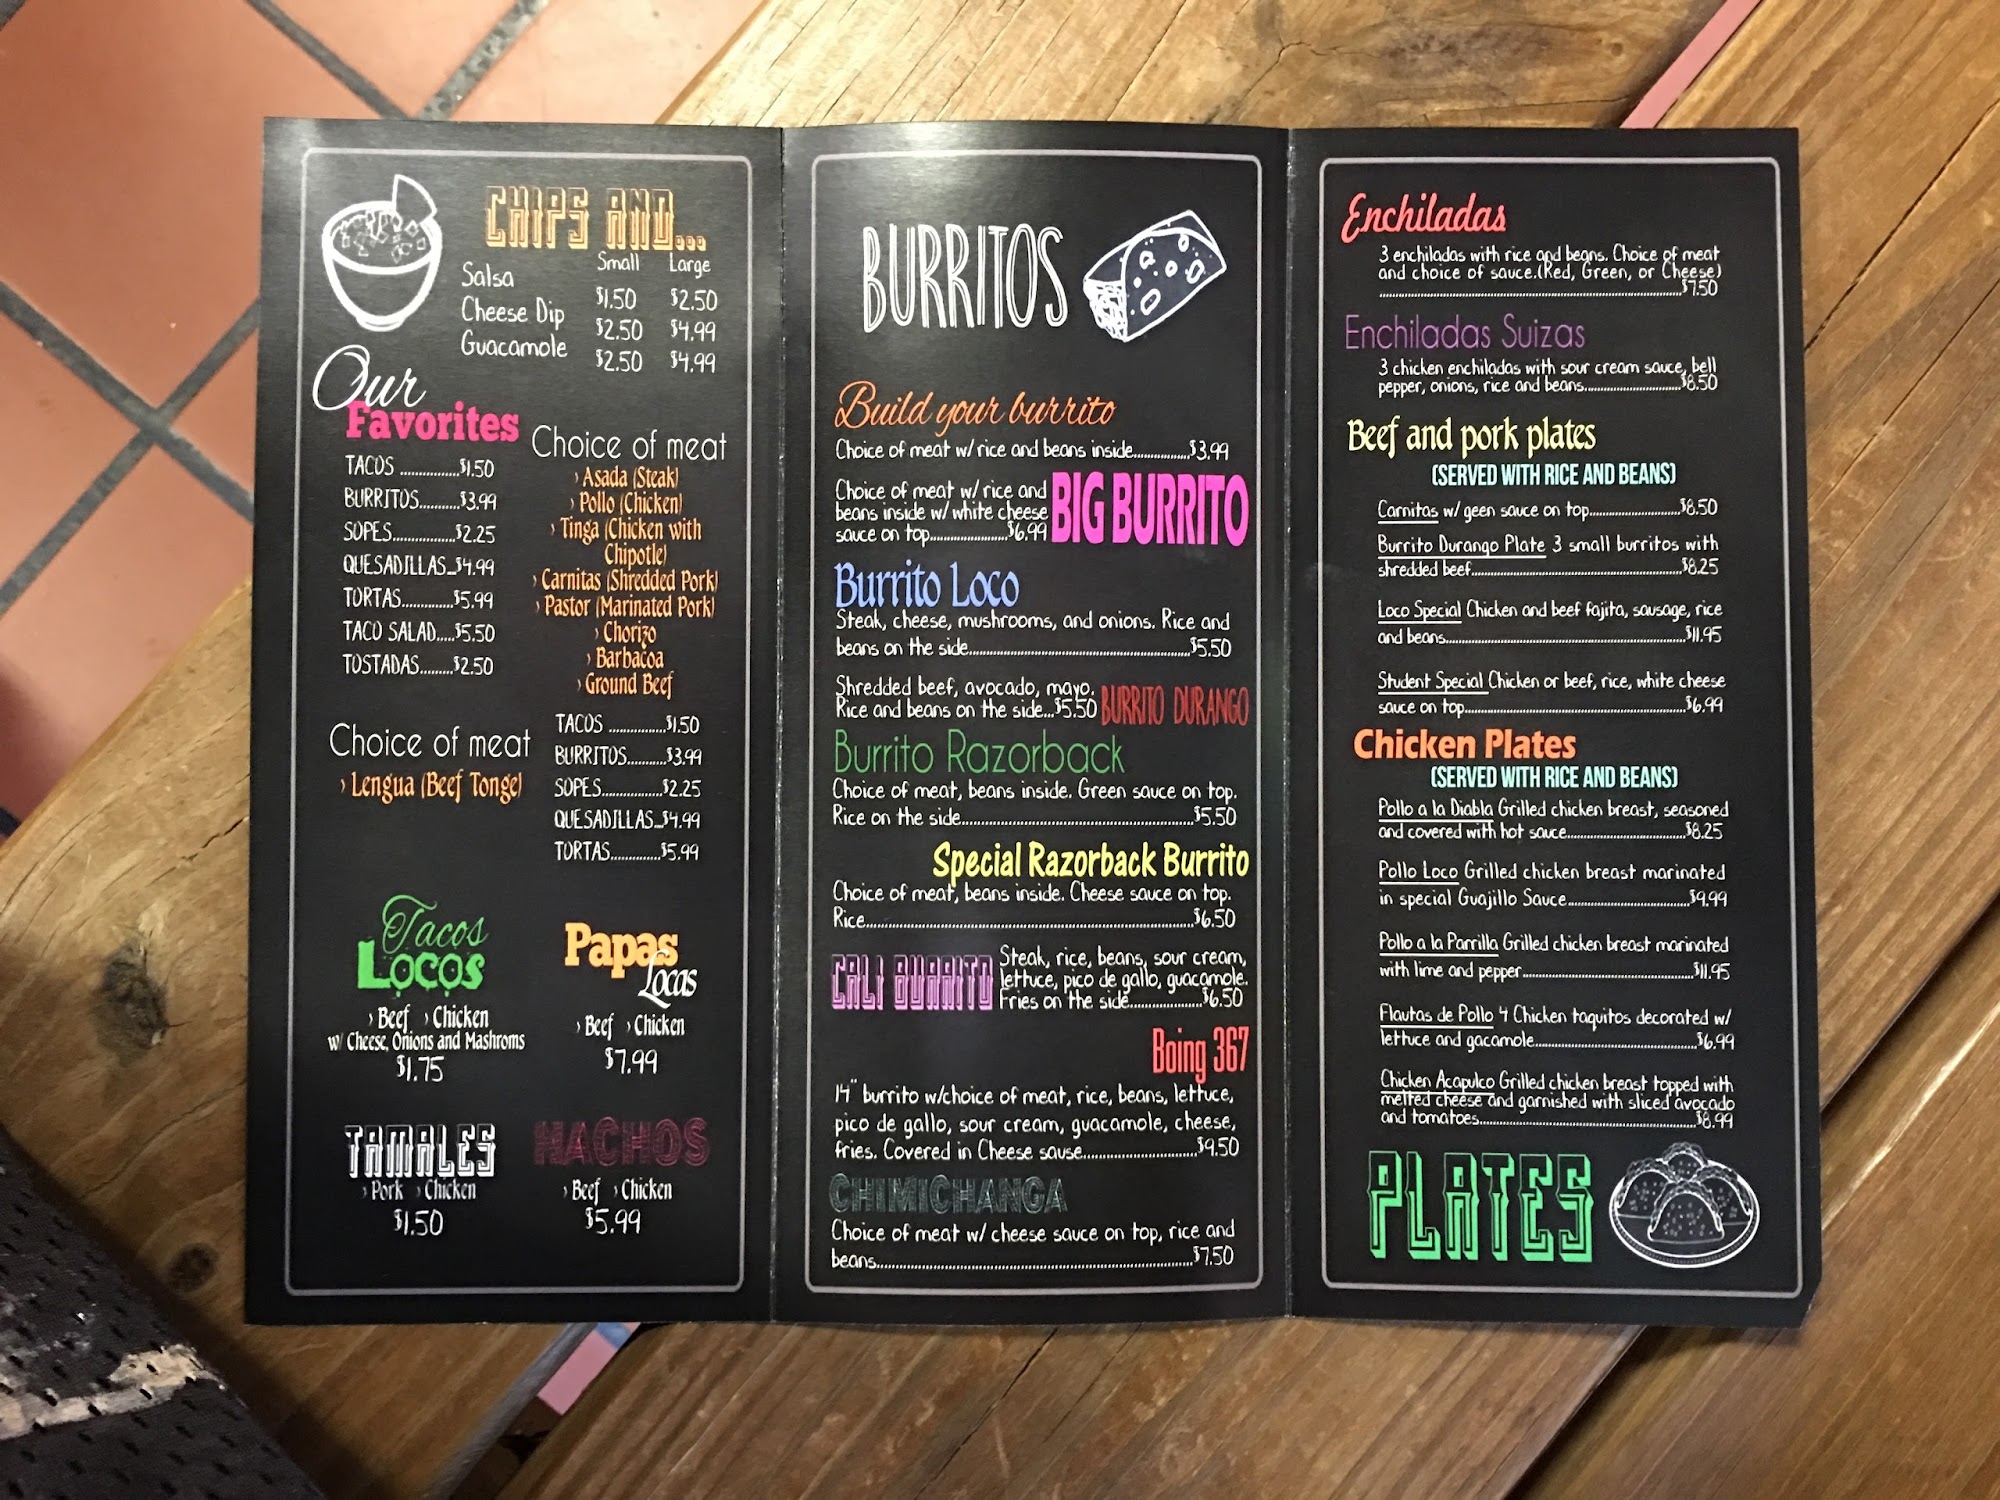 CHIPS AND...
Small Large
Salsa $1.50 $2.50
Cheese Dip $2.50 $4.99
Guacamole $2.50 $4.99
Our
Favorites
TACOS ...............$1.50
BURRITOS...........$3.99
SOPES................$2.25
QUESADILLAS...$4.99
TORTAS.............$5.99
TACO SALAD.....$5.50
TOSTADAS.........$2.50
Choice of meat
› Asada (Steak)
› Pollo (Chicken)
› Tinga (Chicken with
Chipotle)
› Carnitas (Shredded Pork)
› Pastor (Marinated Pork)
› Chorizo
› Barbacoa
› Ground Beef
Choice of meat
› Lengua (Beef Tonge)
TACOS ...............$1.50
BURRITOS...........$3.99
SOPES................$2.25
QUESADILLAS...$4.99
TORTAS.............$5.99
Tacos
Locos
› Beef › Chicken
w/ Cheese, Onions and Mashroms
$1.75
Papas
Locas
› Beef › Chicken
$7.99
TAMALES
› Pork › Chicken
$1.50
NACHOS
› Beef › Chicken
$5.99
BURRITOS
Build your burrito
Choice of meat w/ rice and beans inside...............$3.99
BIG BURRITO
Choice of meat w/ rice and
beans inside w/ white cheese
sauce on top......................$6.99
Burrito Loco
Steak, cheese, mushrooms, and onions. Rice and
beans on the side...............................................$5.50
BURRITO DURANGO
Shredded beef, avocado, mayo.
Rice and beans on the side...$5.50
Burrito Razorback
Choice of meat, beans inside. Green sauce on top.
Rice on the side.................................................$5.50
Special Razorback Burrito
Choice of meat, beans inside. Cheese sauce on top.
Rice.......................................................................$6.50
CALI BURRITO
Steak, rice, beans, sour cream,
lettuce, pico de gallo, guacamole.
Fries on the side....................$6.50
Boing 367
14" burrito w/choice of meat, rice, beans, lettuce,
pico de gallo, sour cream, guacamole, cheese,
fries. Covered in Cheese sause.........................$9.50
CHIMICHANGA
Choice of meat w/ cheese sauce on top, rice and
beans....................................................................$7.50
Enchiladas
3 enchiladas with rice and beans. Choice of meat
and choice of sauce.(Red, Green, or Cheese)
....................................................................$7.50
Enchiladas Suizas
3 chicken enchiladas with sour cream sauce, bell
pepper, onions, rice and beans..........................$8.50
Beef and pork plates
(SERVED WITH RICE AND BEANS)
Carnitas w/ geen sauce on top.........................$8.50
Burrito Durango Plate 3 small burritos with
shredded beef..................................................$8.25
Loco Special Chicken and beef fajita, sausage, rice
and beans.........................................................$11.95
Student Special Chicken or beef, rice, white cheese
sauce on top.....................................................$6.99
Chicken Plates
(SERVED WITH RICE AND BEANS)
Pollo a la Diabla Grilled chicken breast, seasoned
and covered with hot sauce............................$8.25
Pollo Loco Grilled chicken breast marinated
in special Guajillo Sauce.............................$9.99
Pollo a la Parrilla Grilled chicken breast marinated
with lime and pepper........................................$11.95
Flautas de Pollo 4 Chicken taquitos decorated w/
lettuce and gacamole.......................................$6.99
Chicken Acapulco Grilled chicken breast topped with
melted cheese and garnished with sliced avocado
and tomatoes....................................................$8.99
PLATES